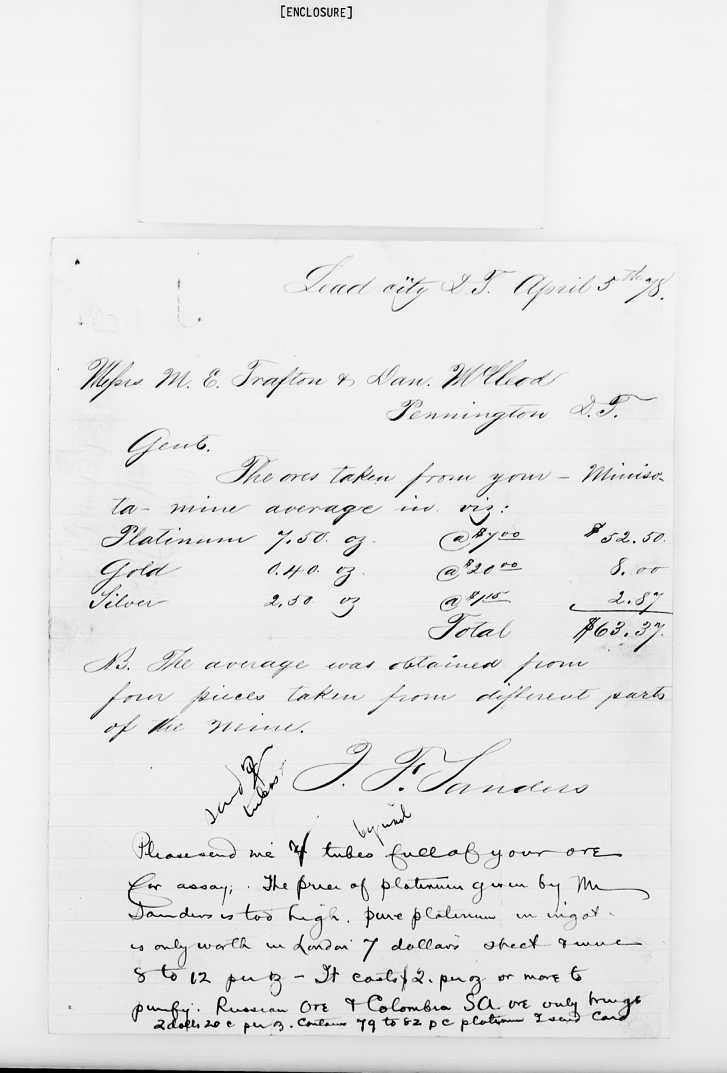 [ENCLOSURE]
Lead city D.T. April 5th 78.
Messrs M. E. Trafton & Dan. McCleod
Pennington D.T.
Gent.
The ores taken from your – Miniso-
ta- mine average in viz:
Platinum 7.50. oz. @ $7.00 $52.50.
Gold 0.40. oz. @ $20.00 8.00
Silver 2.50 oz @ $1.15 2.87
Total $63.37.
NB. The average was obtained from
four pieces taken from different parts
of the mine.
J. F. Sanders
send
tubes
by mail
Please send me 4 tubes full of your ore
for assay; The price of platinum given by Mr
Sanders is too high. pure platinum in ingot
is only worth in London 7 dollars sheet & wire
8 to 12 per oz – It costs $2. per oz or more to
purify. Russian ore & Colombia SA. ore only brings
2 dolls 20 c per oz. Contains 79 to 82 pc platinum I send Card